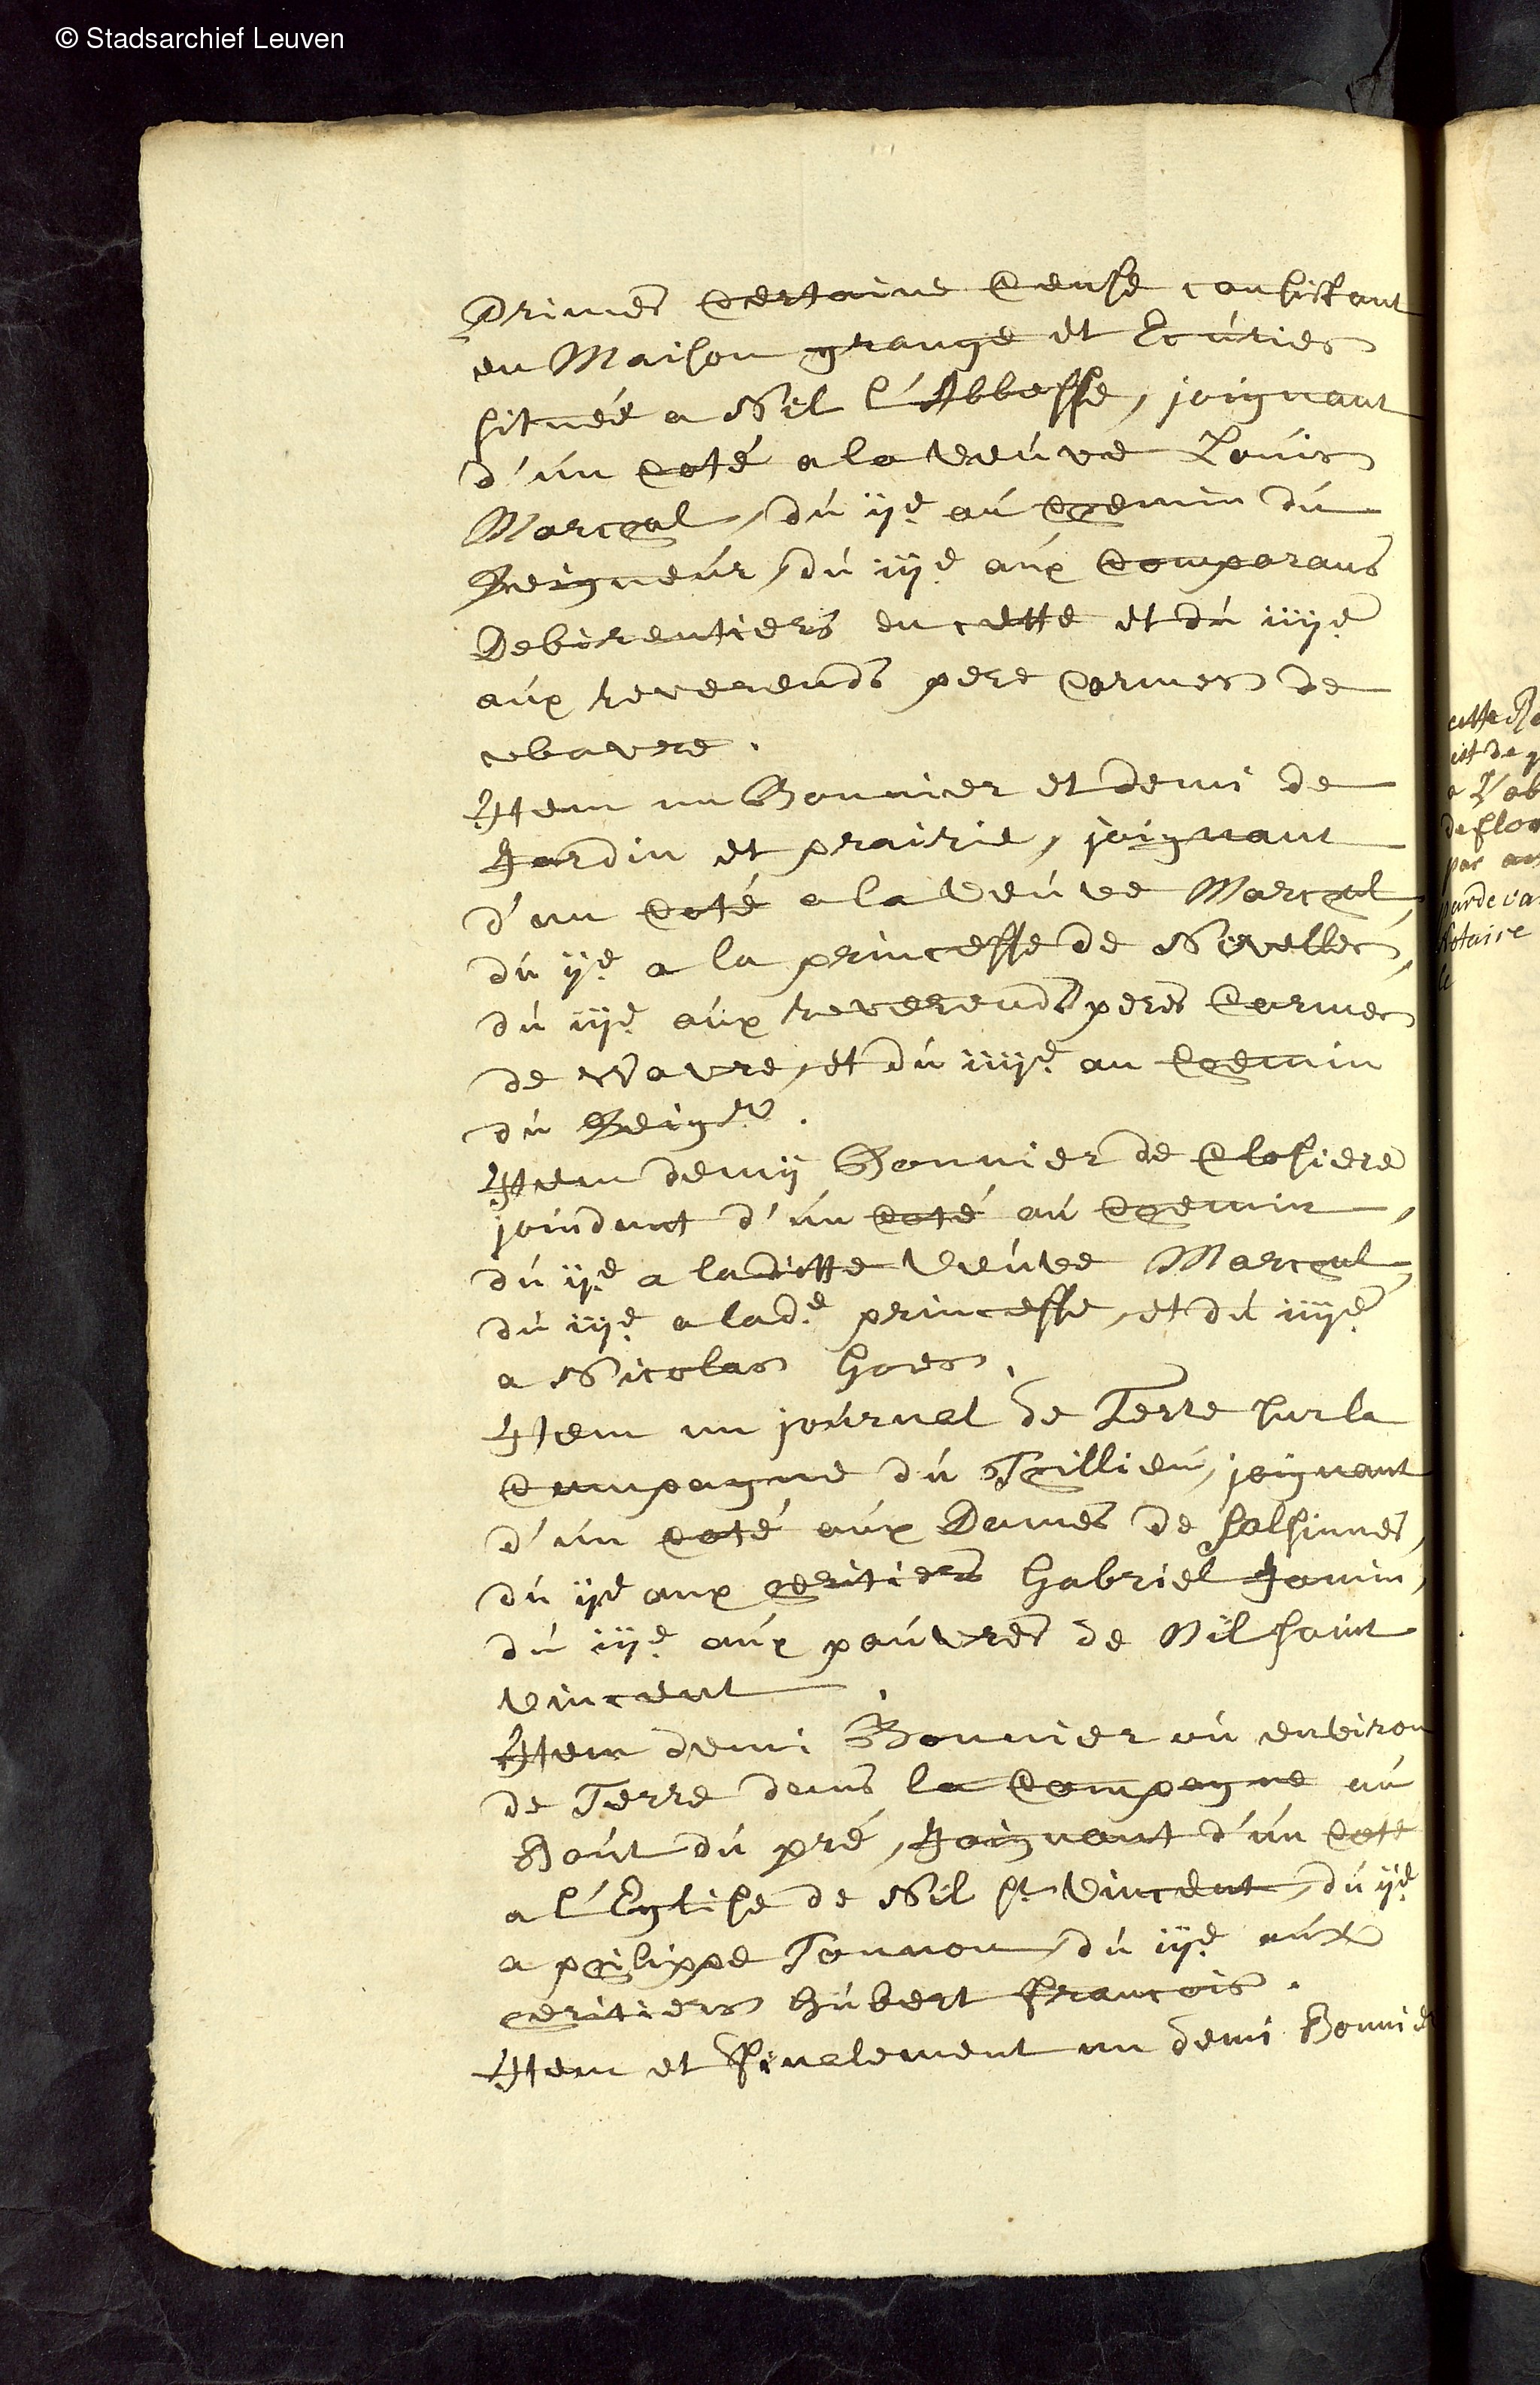 © Stadsarchief Leuven
Primes certaine Cense consistant
en Maison grange et Ecúries
située a Nil l'Abbesse, joignant
d'ún coté a la veúve Loúis
Marchal, dú ije aú chemin dú
Seigneúr, dú iije aúx comparans
Debirentiers en cette et dú iiije
aúx reverends pere Carmes de
Wavre.
Item un Bonnier et demi de
Jardin et prairie, joignant
d'un coté a la veúve Marchal,
dú ije a la princesse de Nivelles,
dú iije aúx reverends peres Carmes
de Wavre, et dú iiije au chemin
dú Seigr.
Item demij Bonnier de Closiere
joindant d'ún coté aú chemin,
dú ije a laditte veúve Marchal,
dú iije a lade princesse, et dú iiije
a Nicolas Goes.
Item un joúrnel de Terre sur la
Campagne dú Tillieú, joignant
d'ún coté aúx Dames de Salsinnes,
dú ije aux heritiers Gabriel Jonin,
dú iije aúx paúvres de Nil saint
Vincent.
Item demi Bonnier oú environ
de Terre dans la Campagne aú
Hoút dú pré, Joignant d'ún coté
a l'Eglise de Nil St Vincent, dú ije
a philippe Tonnon, dú iije aúx
heritiers Húbert François.
Item et Finalement un demi Bonnier
cette Re
est de
a L'ab
de flo
par
parde va
Notaire
le